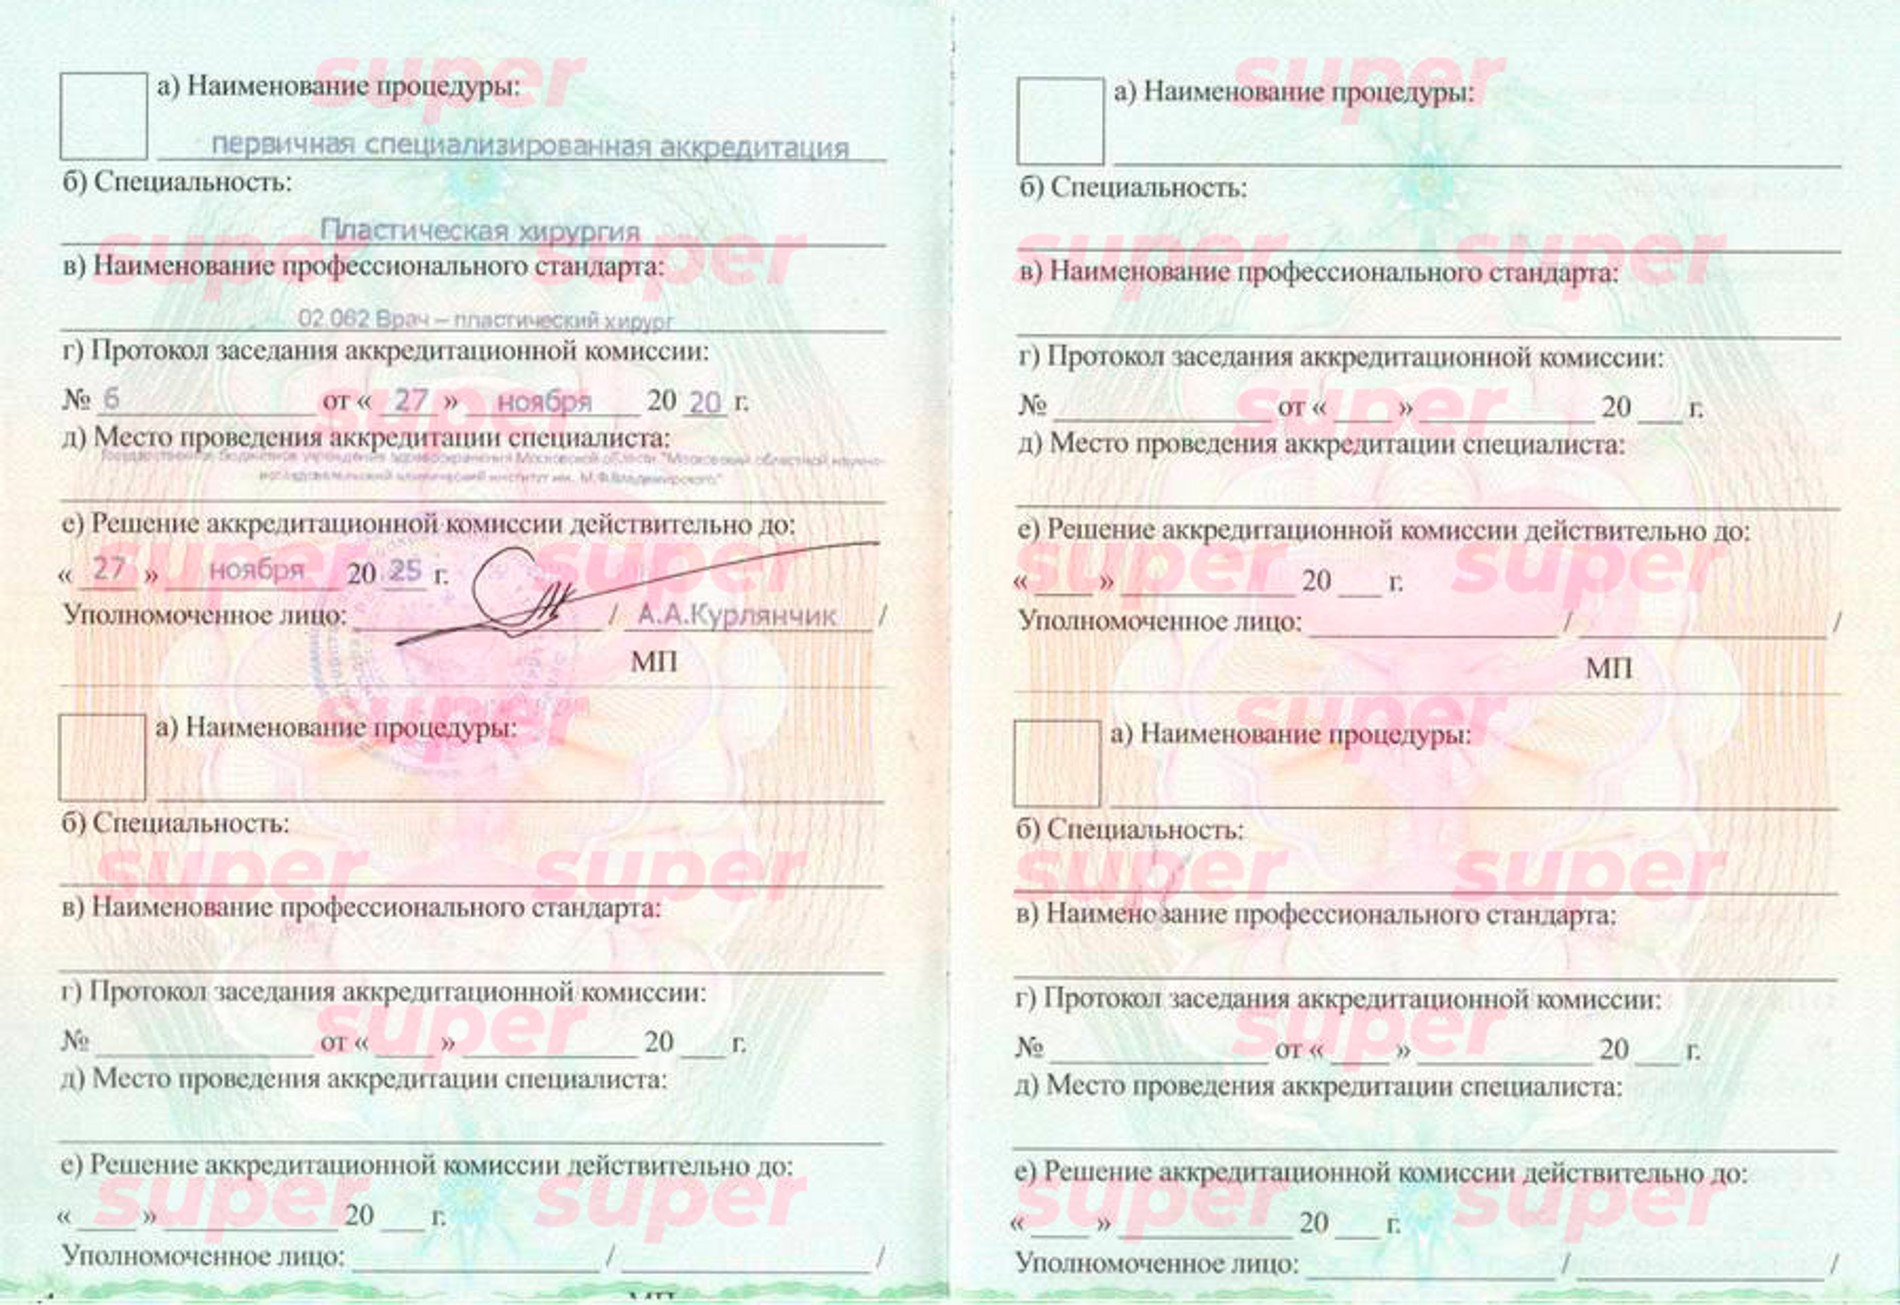 а) Наименование процедуры:
первичная специализированная аккредитация
б) Специальность:
Пластическая хирургия
в) Наименование профессионального стандарта:
02.062 Врач – пластический хирург
г) Протокол заседания аккредитационной комиссии:
№ 6 от « 27 » ноября 20 20 г.
д) Место проведения аккредитации специалиста:
Государственное бюджетное учреждение здравоохранения Московской области "Московский областной научно-
исследовательский клинический институт им. М.Ф.Владимирского"
е) Решение аккредитационной комиссии действительно до:
« 27 » ноября 20 25 г.
Уполномоченное лицо: / А.А.Курлянчик /
МП
а) Наименование процедуры:
б) Специальность:
в) Наименование профессионального стандарта:
г) Протокол заседания аккредитационной комиссии:
№ от « » 20 г.
д) Место проведения аккредитации специалиста:
е) Решение аккредитационной комиссии действительно до:
« » 20 г.
Уполномоченное лицо: / /
МП
а) Наименование процедуры:
б) Специальность:
в) Наименование профессионального стандарта:
г) Протокол заседания аккредитационной комиссии:
№ от « » 20 г.
д) Место проведения аккредитации специалиста:
е) Решение аккредитационной комиссии действительно до:
« » 20 г.
Уполномоченное лицо: / /
МП
а) Наименование процедуры:
б) Специальность:
в) Наименование профессионального стандарта:
г) Протокол заседания аккредитационной комиссии:
№ от « » 20 г.
д) Место проведения аккредитации специалиста:
е) Решение аккредитационной комиссии действительно до:
« » 20 г.
Уполномоченное лицо: / /
super
super super
super
super super
super
super super
super
super super
super
super super
super
super super
super
super super
super
super super